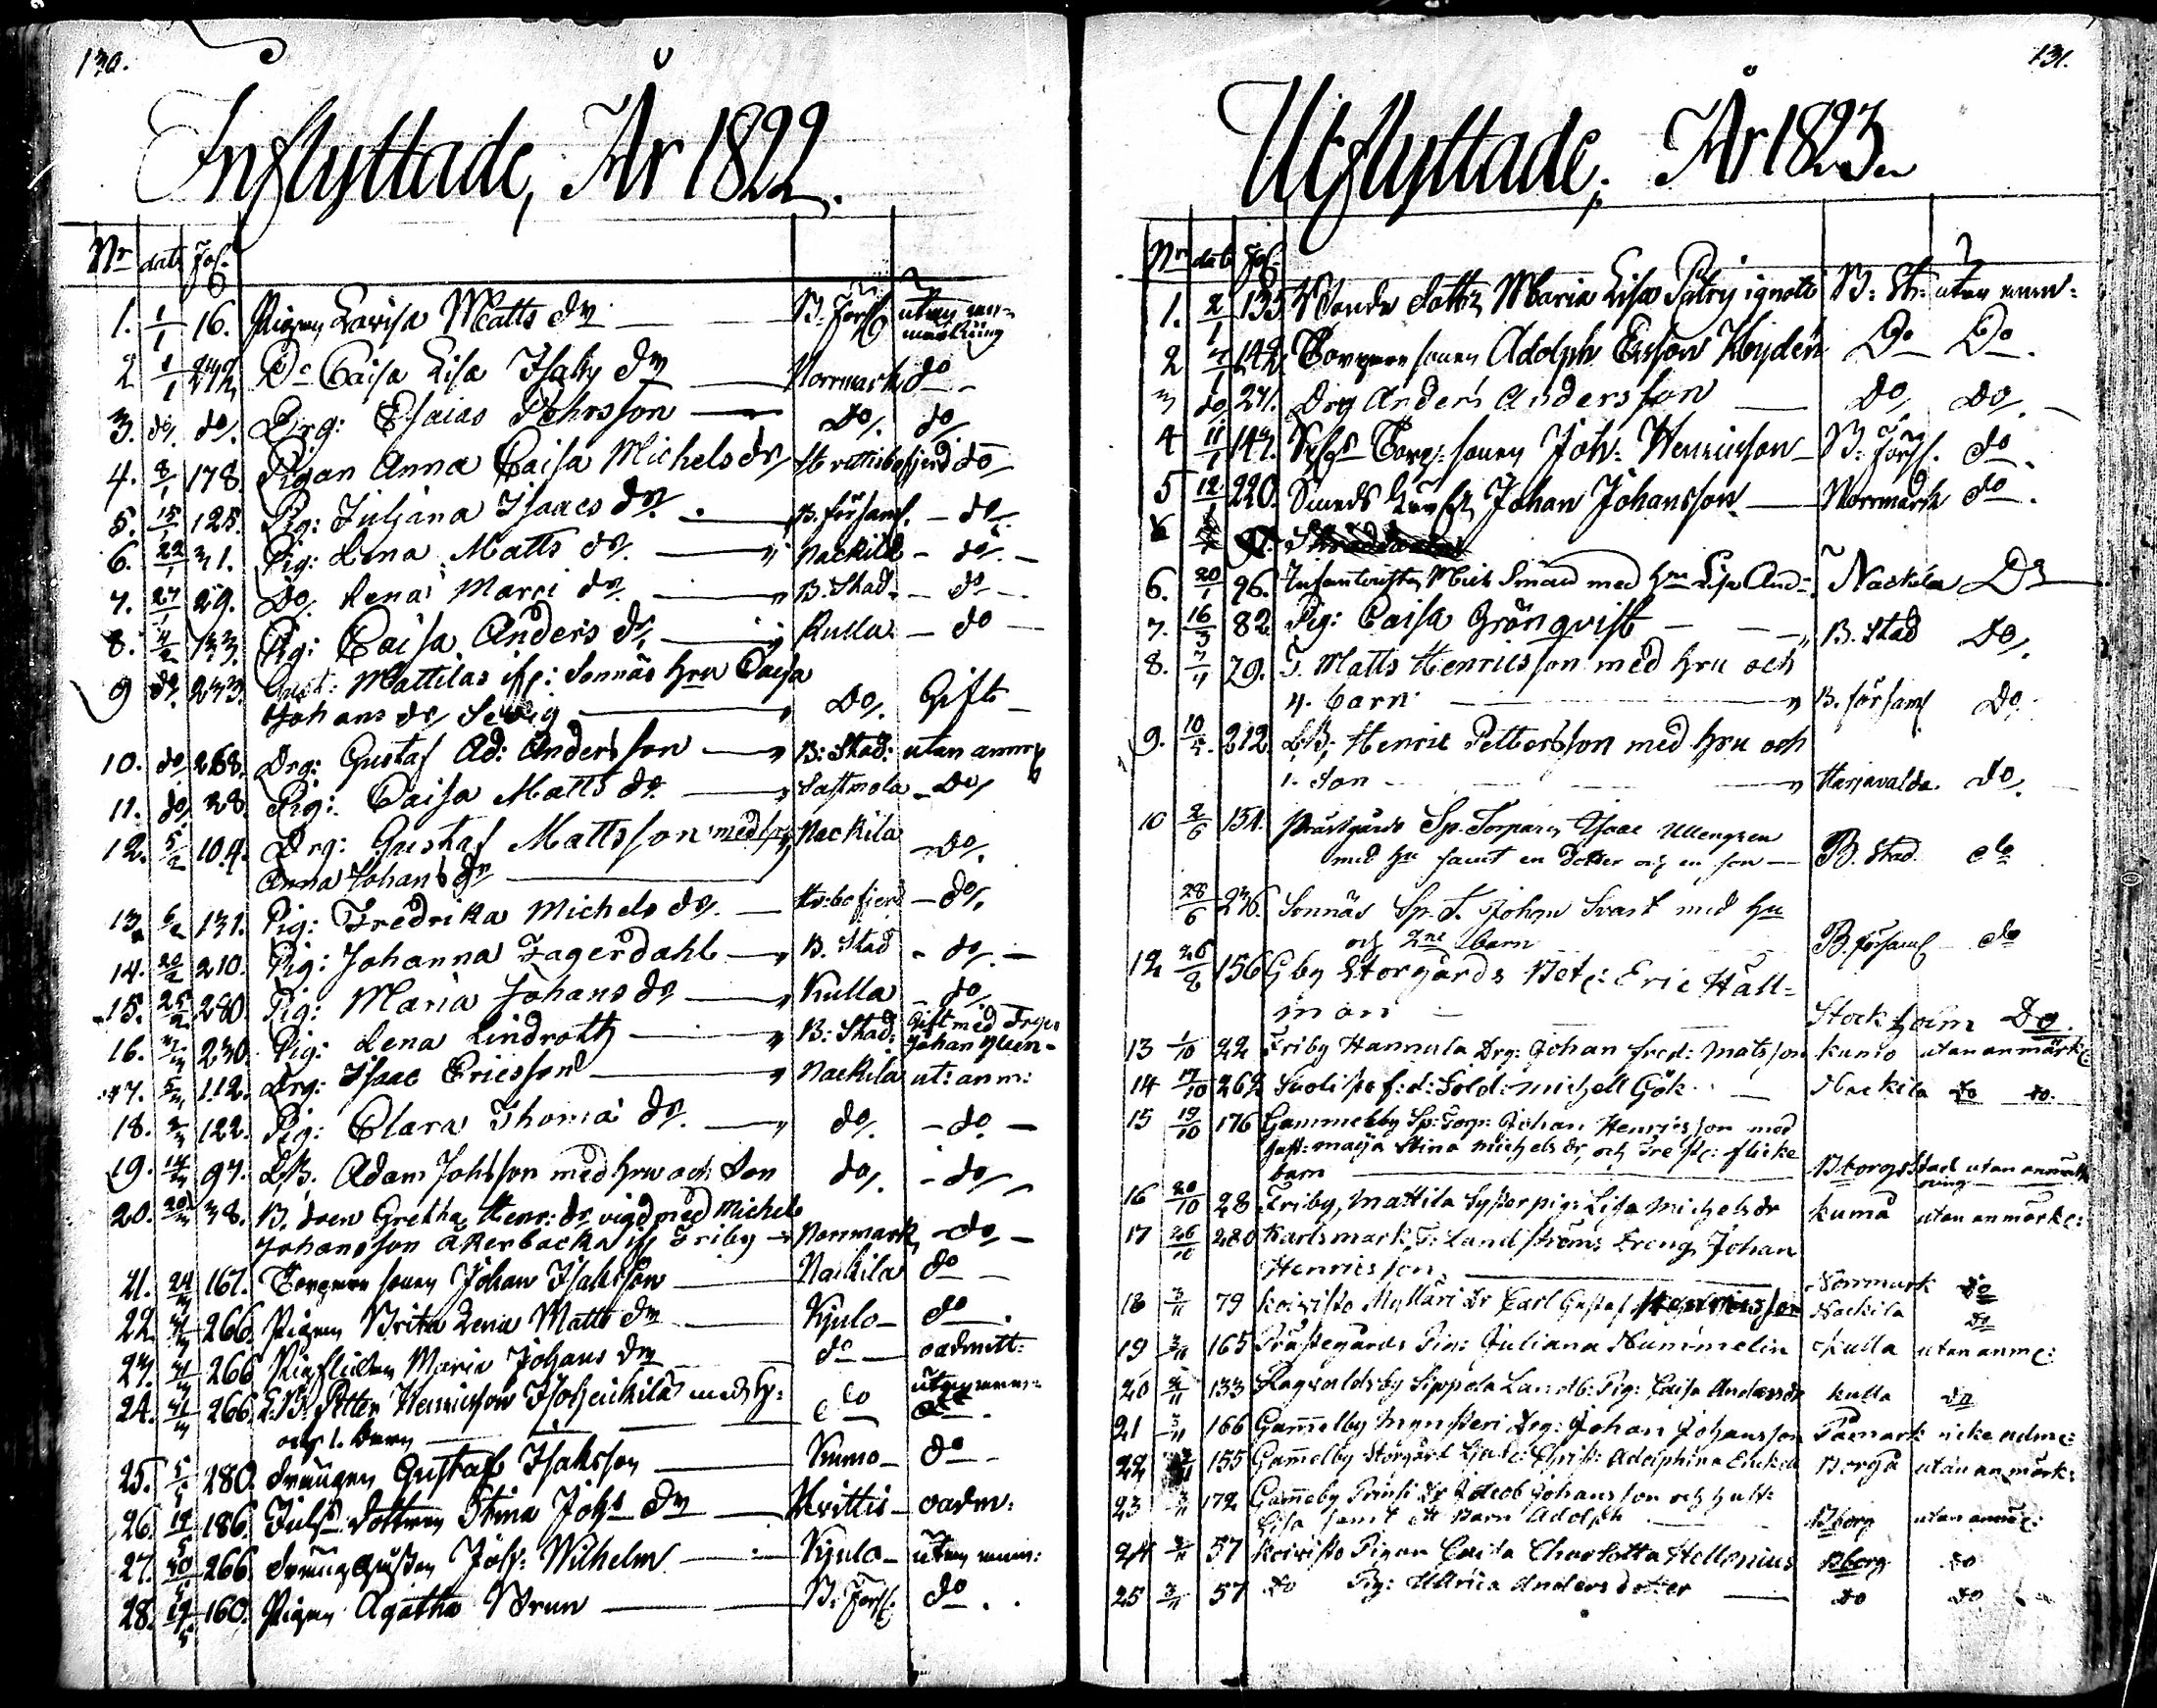 130.
Inflyttade, År 1822.
Nr date Fol.
1. 1/1 16. Pigan Lovisa Matts dr B. Förs. utan an-
märkning
2 1/1 272 Do Caisa Lisa Isaks dr Norrmark do
3. do. do. Drg: Esaias Pehrsson Do. do
4. 8/1 178. Pigan Anna Caisa Michels dr Hvittisbofjerd do
5. 15/1 125. Pig: Juliana Isaacs dr. B. församl. do
6. 22/1 31. Pig: Lena Matts dr. Nackila do.
7. 27/1 29. Do. Lena Marci dr. B. Stad. do
8. 4/2 133. Pig: Caisa Anders dr. Kulla do
9 do. 233. Mattilas Sonnäs hru Caisa
Johans dr Do. Gift
10. do 268. Drg: Gustaf Ad: Andersson B: Stad: utan anm
11. do. 38. Pig: Caisa Matts dr. Sastmola Do
12. 5/2 104. Drg: Gustaf Mattsson med Nackila do.
Anna Johans dr
13. 6/2 131. Pig: Fredrika Michels dr. Hv:bofjerd do.
14. 20/2 210. Pig: Johanna Fagerdahl B. Stad do.
15. 25/2 280. Pig: Maria Johans dr Kulla do.
16. 230. Pig: Lena Lindroth B: Stad: Gift med
Johan
17. 5/3 112. Drg: Isaac Ericsson Nackila ut: anm:
18. 122. Pig: Clara Thomæ dr. do. do
19. 14/3 97. LB. Adam Johsson med hru och Son do. do
20. 20/3 38. B. doen Gretha Henr: dr vigd med Michel
Johansson Åkerbacka Friby Norrmark do
21. 24/3 167. Torpare sonen Johan Isaksson Nackila do
22. 266. Pigan Brita Lena Matts dr Kjulo do
23. 266 Pigflickan Maria Johans dr do oadmitt:
24. 266 LB: Petter Henricsson med h: do utan anm:
och 1. barn
25. 5/5 280. Drängen Gustaf Isaksson Kumo do
26. 12/5 186. dottren Stina Johs dr Hvittis oadm:
27. 266. Joh: Wilhelm Kjulo utan anm:
28. 19/5 160. Pigan Agatha Brun B: Förs: do
131.
Utflyttade, År 1823.
Nr date Fol.
1. 2/1 135 dottr Maria Lisa Patris ignoti B: St: utan anm:
2 142 Torpare sonen Adolph Ersson Hydén Do Do.
3 do 271. Drg Anders Andersson Do. Do.
4 11/1 147. Torp: sonen Joh: Henricsson B: Förs. do
5 12/1 220. Smeds Johan Johansson Norrmark do.
6. 20/1 96. Mich Smäd med hru Lisa And: Nackila Do
7. 16/3 82 Pig: Caisa Grönqvist B. Stad Do.
8. 79. T. Matts Henricsson med hru och
4. barn B. församl Do.
9. 10/5. 212. LB: Henric Pettersson med hru och
1. Son Harjavalda. do.
10 2/6 154. Prästgårds Sp. Torparn Isaac Ullengren
med hu samt en dotter och en son B. Stad do
28/6 236. Sonnäs Sp. T. Johan Svart med hu
och 2ne barn B. församl do
12 26/8 156 Gby Storgårds Bet: Eric Häll-
man Stockholm Do.
13 1/10 22 Friby Hannula Drg: Johan Fred: Matsson Kumo utan anmärk:
14 17/10 262 Suolisto f:d: Sold: Michell Gök Nackila do do.
15 19/10 176 Gammelby Sp: Torp: Johan Henricsson med
hust: Maija Stina Michels dr, och Tre st: flicke
barn Bborgs Stad utan anmärk
ning
16 20/10 28 Friby, Mattila Syster pig: Lisa Michels dr Kumå utan anmärk:
17 26/10 280 Karlsmark, T: Landströms Dreng Johan
Henricsson Norrmark do
18 3/11 79 Koivisto Myllari Dr Carl Gustaf Henricsson Nackila do
19 3/11 165 Prästegårds Pig: Juliana Nummelin Kulla utan anm:
20 2/11 133 Ragvaldsby Sippola Landb: Pig: Caisa Anders dr Kulla do
21 3/11 166 Gam̄elby Mynsteri Drg: Johan Johansson Påmark icke adm:
22 155 Gam̄elby Storgård Christ: Adolphina Enckell Borgå utan anmärk:
23 3/11 172 Gam̄eby Prinsi Dr Jacob Johansson och hust:
Lisa samt ett Barn Adolph Bborg utan anm:
24 3/11 57 Koivisto Pigan Caisa Charlotta Hellenius Bborg do
25 3/11 57 do Pig: Ullrica Andersdotter do do